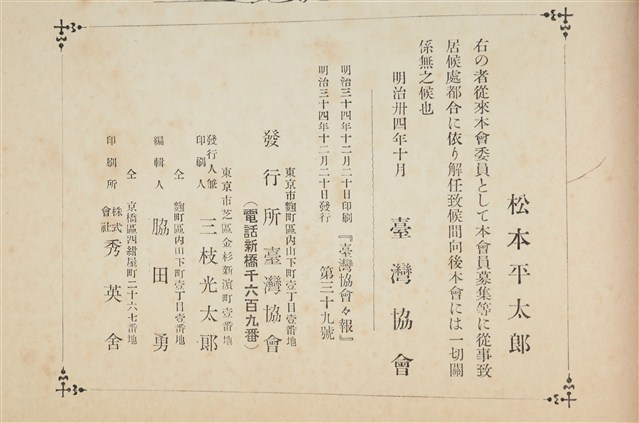 松本平太郎
右の者從來本會委員として本會員募集等に從事致
居候處都合に依り解任致候間向後本會には一切關
係無之候也
明治卅四年十月　臺灣協會
明治三十四年十二月二十日印刷
明治三十四年十二月二十日發行
『臺灣協會々報』
第三十九號
東京市麴町區內山下町壹丁目壹番地
發行所　臺灣協會
（電話新橋千六百九番）
東京市芝區金杉新濱町壹番地
發行人兼印刷人　三枝光太郎
仝　麴町區內山下町壹丁目壹番地
編輯人　脇田勇
仝　京橋區西紺屋町二十六七番地
印刷所　株式會社　秀英舍